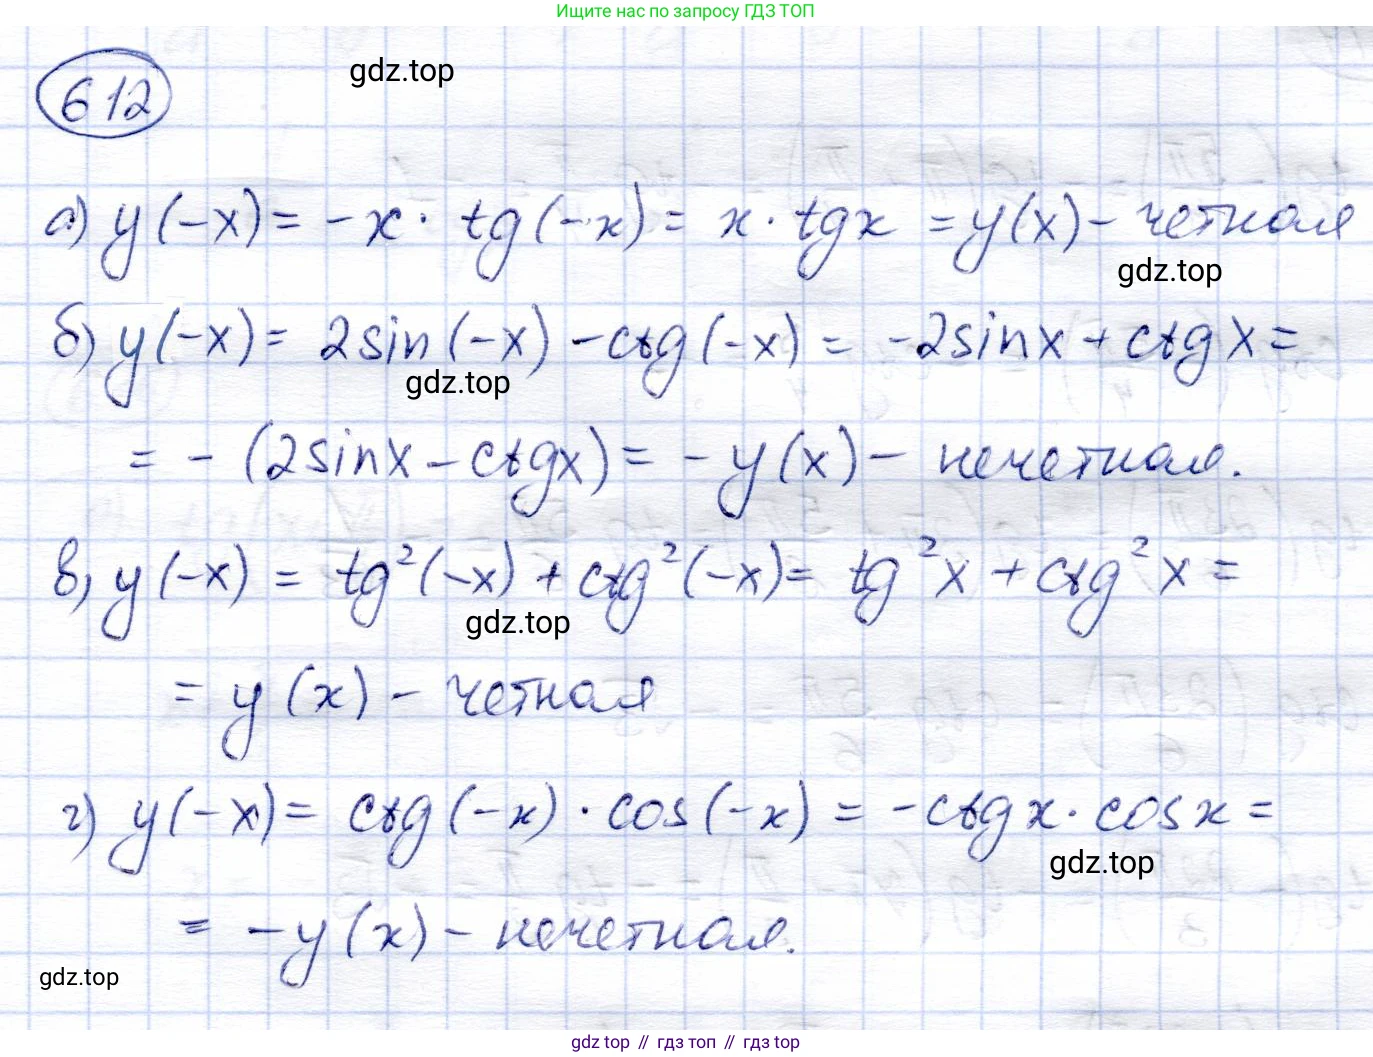 Ищите нас по запросу ГДЗ ТОП
gdz.top
612
а) y(-x) = -x · tg(-x) = x · tgx = y(x) - четная
gdz.top
б) y(-x) = 2sin(-x) - ctg(-x) = -2sinx + ctgx =
gdz.top
= - (2sinx - ctgx) = - y(x) - нечетная.
в) y(-x) = tg²(-x) + ctg²(-x) = tg²x + ctg²x =
gdz.top
= y(x) - четная
г) y(-x) = ctg(-x) · cos(-x) = -ctgx · cosx =
gdz.top
= -y(x) - нечетная.
gdz.top
gdz top // гдз топ // гдз top